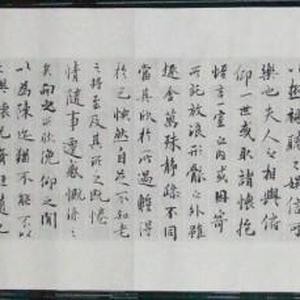 以極視聽之娛信可
樂也夫人之相與俯
仰一世或取諸懷抱
悟言一室之內或因寄
所託放浪形骸之外雖
趣舍萬殊靜躁不同
當其欣於所遇暫得
於己怏然自足不知老
之將至及其所之既惓
情隨事遷感慨係之
矣向之所欣俛仰之閒
以為陳迹猶不能不以
之興懷況脩短隨